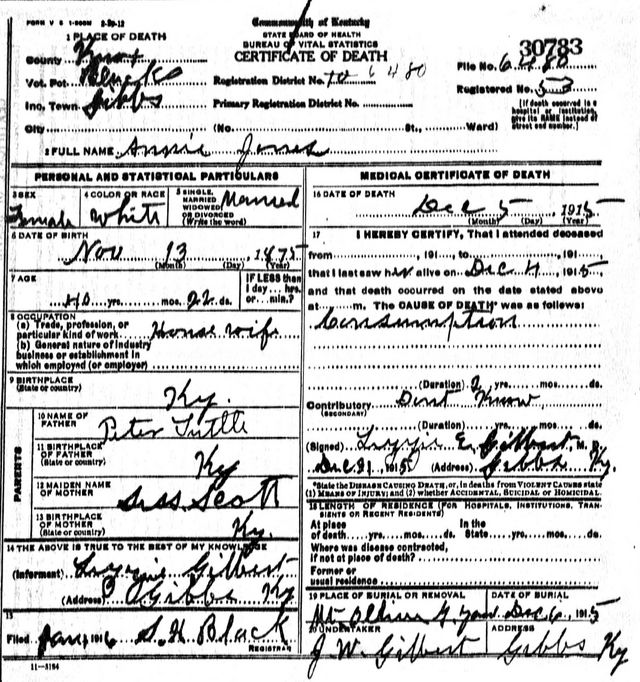 FORM V S 1-500M 2-29-12
Commonwealth of Kentucky
STATE BOARD OF HEALTH
BUREAU OF VITAL STATISTICS
CERTIFICATE OF DEATH
30783
1 PLACE OF DEATH
County Knox
Vot. Pct.
Inc. Town Gibbs
City
Registration District No. 6480
Primary Registration District No.
(No. St., Ward)
File No. 6480
Registered No. 53
[If death occurred in a hospital or institution, give its NAME instead of street and number.]
2 FULL NAME Annie Jones
PERSONAL AND STATISTICAL PARTICULARS
3 SEX Female
4 COLOR OR RACE White
5 SINGLE, MARRIED, WIDOWED OR DIVORCED (Write the word) Married
6 DATE OF BIRTH Nov 13, 1875
(Month) (Day) (Year)
7 AGE 40 yrs. mos. 22 ds.
IF LESS than 1 day... hrs. or... min.?
8 OCCUPATION
(a) Trade, profession, or particular kind of work House wife
(b) General nature of industry business or establishment in which employed (or employer)
9 BIRTHPLACE (State or country) Ky.
PARENTS
10 NAME OF FATHER Peter Tuttle
11 BIRTHPLACE OF FATHER (State or country) Ky
12 MAIDEN NAME OF MOTHER Siss Scott
13 BIRTHPLACE OF MOTHER (State or country) Ky.
14 THE ABOVE IS TRUE TO THE BEST OF MY KNOWLEDGE
(Informant) Lizzie Gilbert
(Address) Gibbs Ky
15
Filed Jan, 1916 S. H. Black
REGISTRAR
11-3184
MEDICAL CERTIFICATE OF DEATH
16 DATE OF DEATH Dec 5, 1915
(Month) (Day) (Year)
17 I HEREBY CERTIFY, That I attended deceased
from , 191 , to , 191
that I last saw her alive on Dec 4 1915
and that death occurred on the date stated above
at m. The CAUSE OF DEATH* was as follows:
Consumption
(Duration) 2 yrs. mos. ds.
Contributory (SECONDARY) Dont Know
(Duration) yrs. mos. ds.
(Signed) Lizzie E. Gilbert, M. D.
Dec 31, 1915 (Address) Gibbs Ky.
*State the DISEASE CAUSING DEATH, or, in deaths from VIOLENT CAUSES state (1) MEANS OF INJURY; and (2) whether ACCIDENTAL, SUICIDAL or HOMICIDAL.
18 LENGTH OF RESIDENCE (FOR HOSPITALS, INSTITUTIONS, TRANSIENTS OR RECENT RESIDENTS)
At place of death yrs. mos. ds. In the State yrs. mos. ds.
Where was disease contracted, if not at place of death?
Former or usual residence
19 PLACE OF BURIAL OR REMOVAL Mt Olive G. Yard
DATE OF BURIAL Dec 6, 1915
20 UNDERTAKER J. W. Gilbert
ADDRESS Gibbs Ky